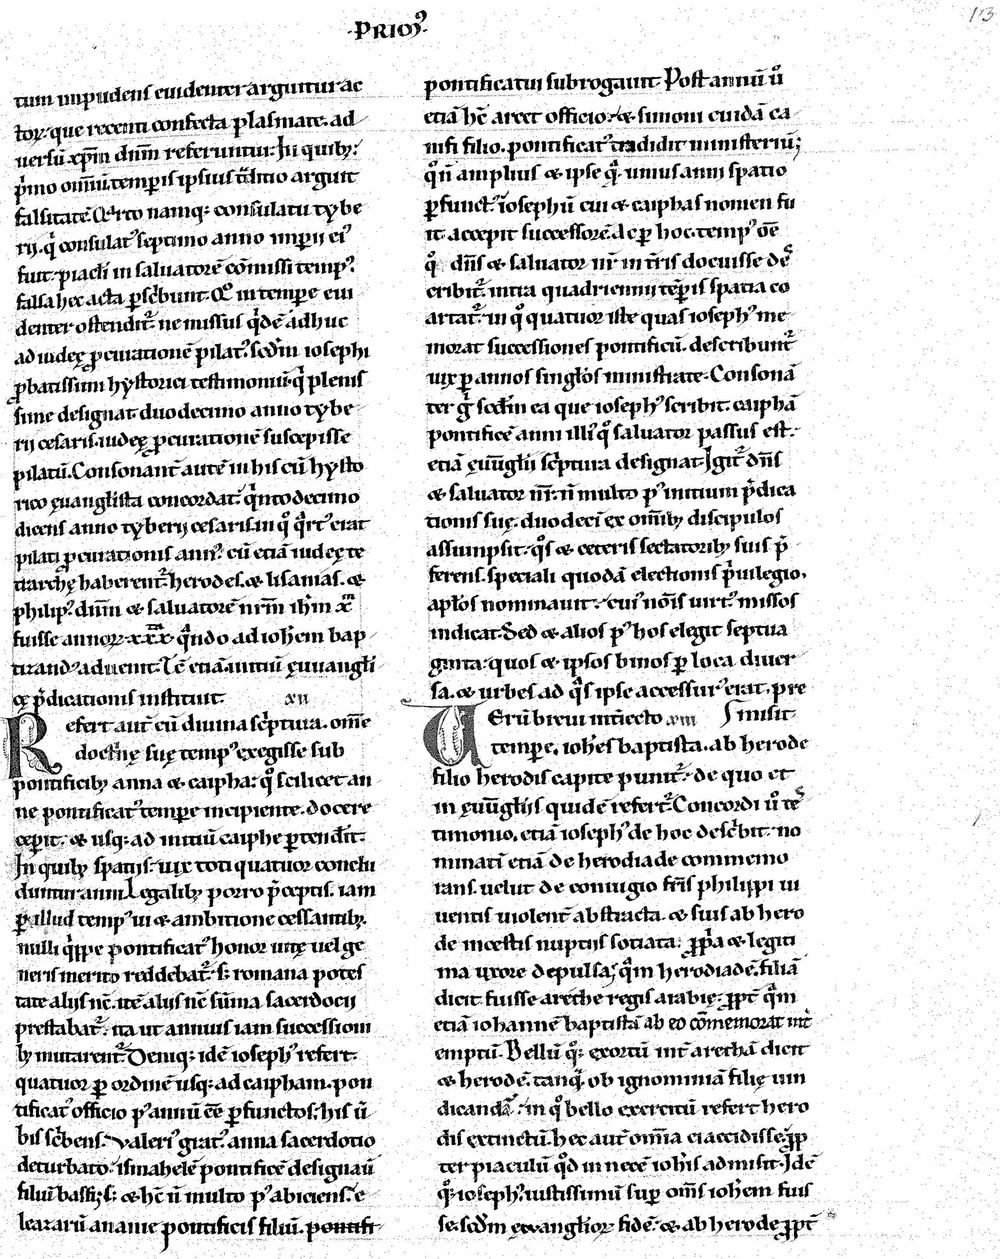 ·PRIMꝰ·
113
tum impudens euidenter arguitur ac
toꝝ. que recenti confecta plasmate. ad
uersū xp̄m dn̄m referuntur. In quibꝫ:
p̄mo om̄iū temp̄is ipsius t̄litio arguit
falsitatē. Q̈rto namqꝫ consulatu tybe
rij. q̇ consulatꝰ septimo anno imperij eiꝰ
fuit. piacl̄i in saluatorē cōmissi tempꝰ.
falsa hec acta ꝑsc̄bunt. Qđ in tempe eui
denter ostenditᷣ. ne missus q̇dē adhuc
ad iudeę ꝓcurationē pilatꝰ. scd̄m iosephi
ꝓbatissimi hystorici testimoniū. q̇ plenis
sime designat duodecimo anno tybe
rij cesaris. iudeę ꝓcurationē suscepisse
pilatū. Consonant̄ autē in his cū hysto
rico euangl̄ista concordat. q̇ntodecimo
dicens anno tyberij cesaris. in q̊ q̈rtꝰ erat
pilati ꝓcurationis annꝰ. cū etiā iudeę te
trarchę haberentᷣ herodes. & lisanias. &
philipꝰ. dn̄m & saluatorē nr̄m ih̄m x̄m
fuisse annoꝝ xxx. q̈ndo ad ioh̄em bap
tizandꝰ aduenit. & etiā initiū ęuuangl̄i
cę p̄dicationis instituit. xii
Refert aut̄ cū diuina sc̄ptura. om̄e
doct̄nę suę tempꝰ exegisse sub
pontificibꝫ anna & caipha: qđ scilicet an
ne pontificatꝰ tempe incipiente. docere
cepit. & usqꝫ ad initiū caiphe ꝑtendit.
In quibꝫ spatijs. uix toti quatuor conclu
duntur anni. Legalibꝫ porro p̄ceptis. iam
ꝑ illud tempꝰ ui & ambitione cessantibꝫ.
nulli q̇ppe pontificatꝰ honor uitę uel ge
neris merito reddebatᷣ. sꝫ romana potes
tate alijs nc̄. itē alijs nc̄ sūma sacerdocij
prestabatᷣ. ita ut annuis iam successioni
bꝫ mutarentᷣ. Deniqꝫ idē iosephꝰ refert.
quatuor ꝑ ordinē usqꝫ ad caipham. pon
tificatꝰ officio pꝰ annū ēē ꝑfunctos. his ū
bis sc̄bens. Valeriꝰ gratꝰ. anna sacerdotio
deturbato. ismahelē pontificē designauī
filiū baffi. sꝫ & hc̄ n̄ multo pꝰ abiciens. e
leazarū ananie pontificis filiū. pontifi
pontificatui subrogauit. Post annū ū
etiā hc̄ arcet officio. & simoni cuidā ca
nifi filio. pontificatꝰ tradidit ministeriū;
qđ n̄ amplius & ipse q̈. unius anni spatio
ꝑfunctꝰ. iosephū cui & caiphas nomen fu
it. accepit successorē. Ac ꝑ hoc. tempꝰ om̄e
q̊ dn̄s & saluator nr̄ in t̄ris docuisse des
cribitᷣ. intra quadriennij tēp̄is spatia co
artatᷣ. in q̊ quatuor iste quas iosephꝰ me
morat successiones pontificū. describuntᷣ
uix ꝑ annos singl̄os ministrate. Consonā
ter ḡ scd̄m ea que iosephꝰ scribit. caiphā
pontificē anni illiꝰ q̊ saluator passus est.
etiā ęuūgl̄ij sc̄ptura designat. Igitᷣ dn̄s
& saluator nr̄. n̄ multo pꝰ initium p̄dica
tionis suę. duodeci ex om̄ibꝫ discipulos
assumpsit. q̊s & ceteris sectatoribꝫ suis p̄
ferens. speciali quodā electionis p̄uilegio.
apl̄os nominauit. cuiꝰ nōis uirtꝰ missos
indicat. Sed & alios pꝰ hos elegit septua
ginta: quos & ipsos binos ꝑ loca diuer
sa. & urbes ad q̈s ipse accessurꝰ erat. pre
misit.
Uerū breui int̄iecto xiii
tempe. ioh̄es baptista. ab herode
filio herodis capite punitᷣ. de quo et
in ęuūgl̄ijs quidē refertᷣ. Concordi ū tes
timonio. etiā iosephꝰ de hoc desc̄bit. no
minatī etiā de herodiade commemo
rans. uelut de coniugio fr̄is philippi ui
uentis uiolent̄ abstracta. & suis ab hero
de incestis nuptijs sotiata. ꝓpa & legiti
ma uxore depulsa; q̈m herodiadē. filiā
dicit fuisse arethe regis arabię. ꝓpt̄ q̈m
etiā iohannē baptistā ab eo cōmemorat int̄
emptū. Bellū qꝫ exortū int̄ arethā dicit
& herodē. tanq̈. ob ignominiā filię uin
dicandā. in q̊ bello exercitū refert hero
dis extinctū. hec aut̄ om̄ia ei accidisse. ꝓp
ter piaculū qđ in necē ioh̄is admisit. Idē
qꝫ iosephꝰ. iustissimū suꝑ om̄s ioh̄em fuis
se. scd̄m ęuuanglioꝝ fidē. & ab herode ꝓpt̄